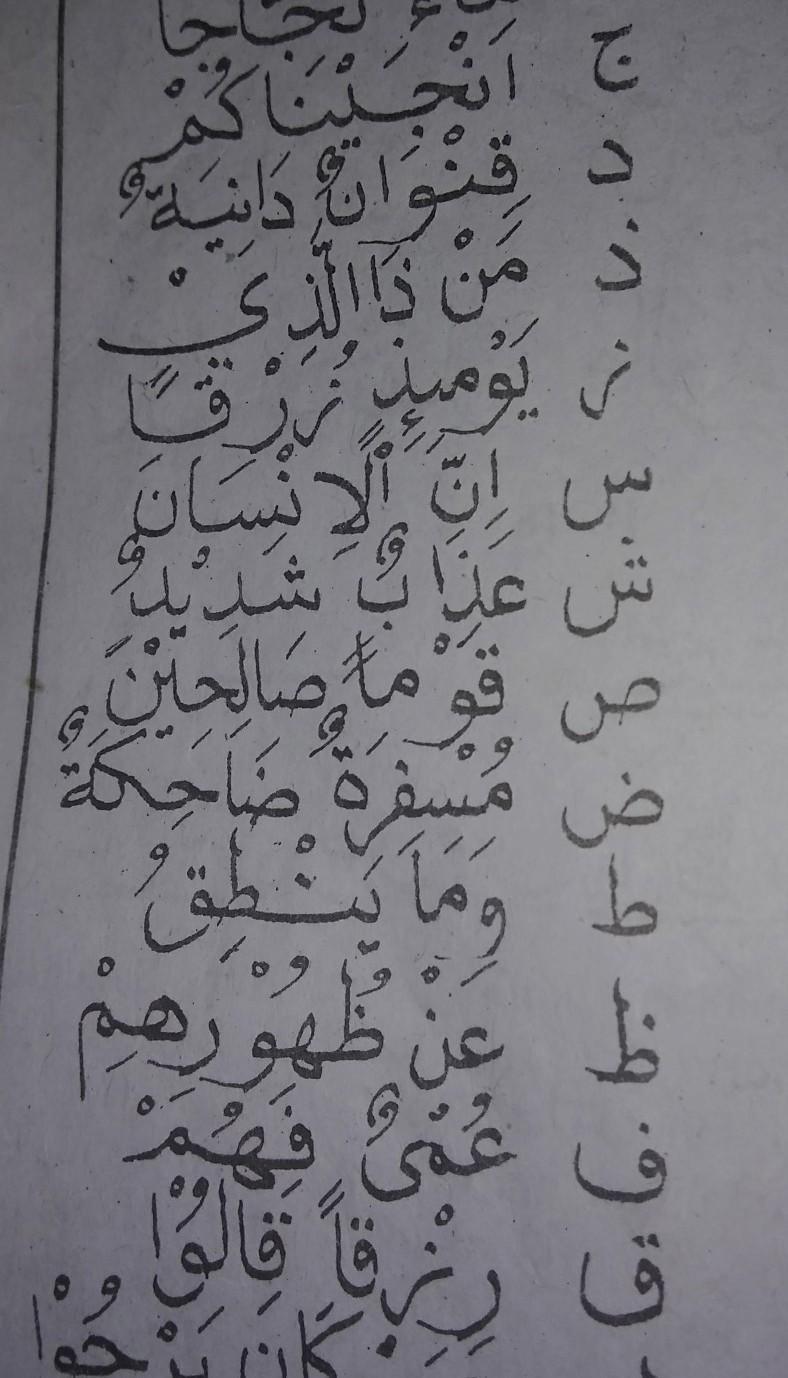 ثَجَّاجًا
ج اَنْجَيْنَاكُمْ
د قِنْوَانٌ دَانِيَةٌ
ذ مَنْ ذَا الَّذِىْ
ز يَوْمَئِذٍ زُرْقًا
س اِنَّ الْاِنْسَانَ
ش عَذَابٌ شَدِيْدٌ
ص قَوْماً صَالِحِيْنَ
ض مُسْفِرَةٌ ضَاحِكَةٌ
ط وَمَا يَنْطِقُ
ظ عَنْ ظُهُوْرِهِمْ
ف عُمْىٌ فَهُمْ
ق رِزْقاً قَالُوْا